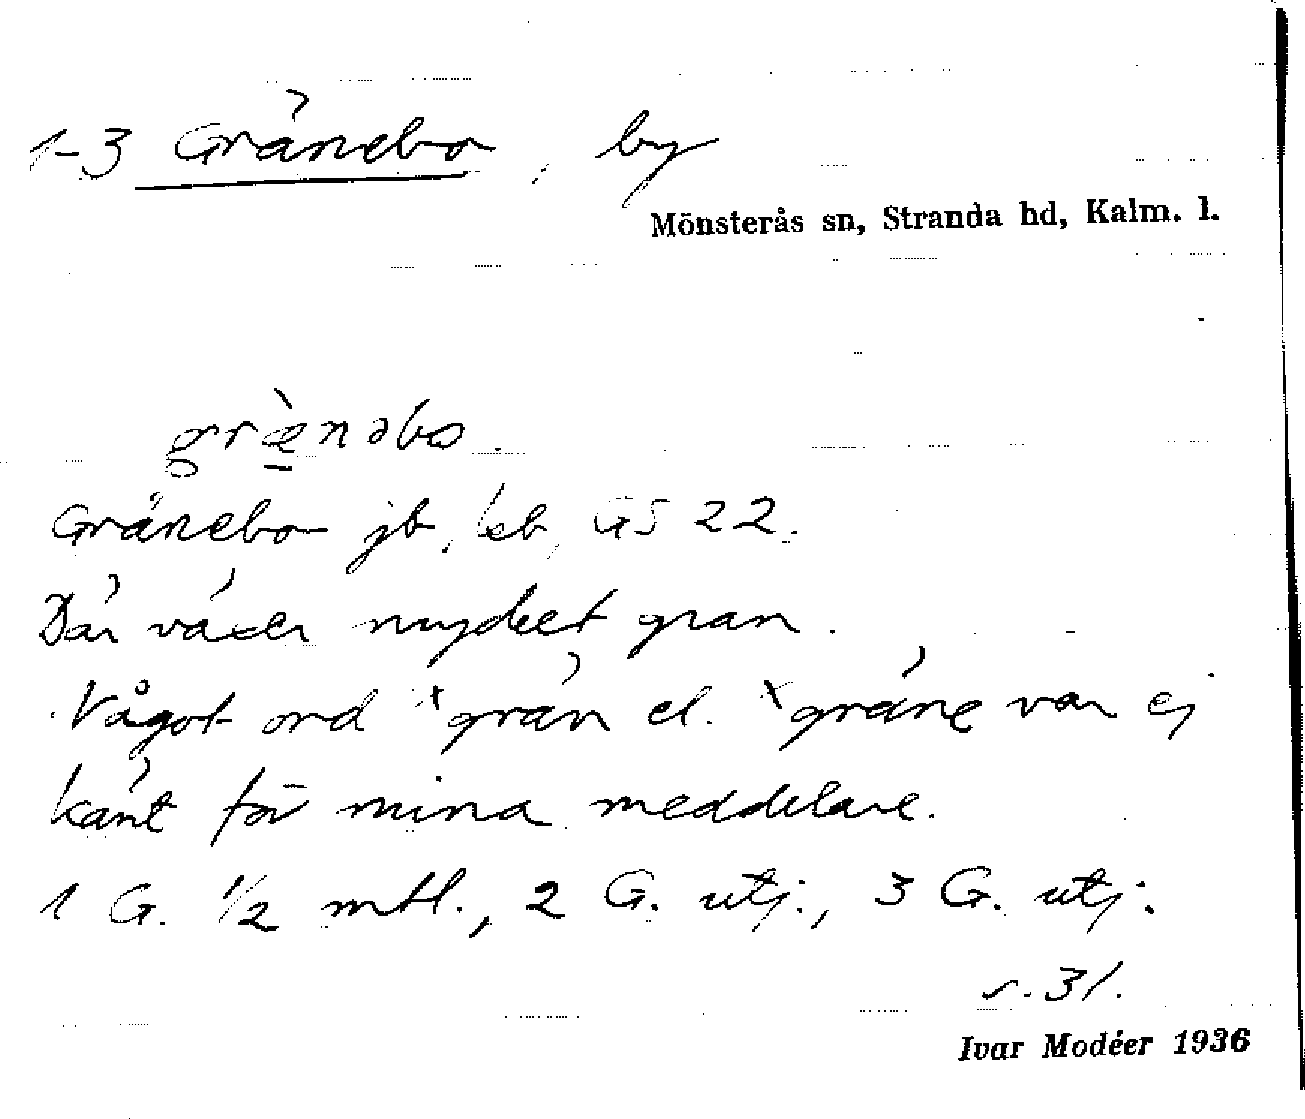 1-3 Gränebo, by
Mönsterås sn, Stranda hd, Kalm. l.
græ̀nəbo.
Gränebo jb, leb, GS 22.
Där växer mycket gran.
Något ord *grän el. *gräne var ej
känt för mina meddelare.
1 G. 1/2 mtl., 2 G. utj., 3 G. utj.
s. 31.
Ivar Modéer 1936